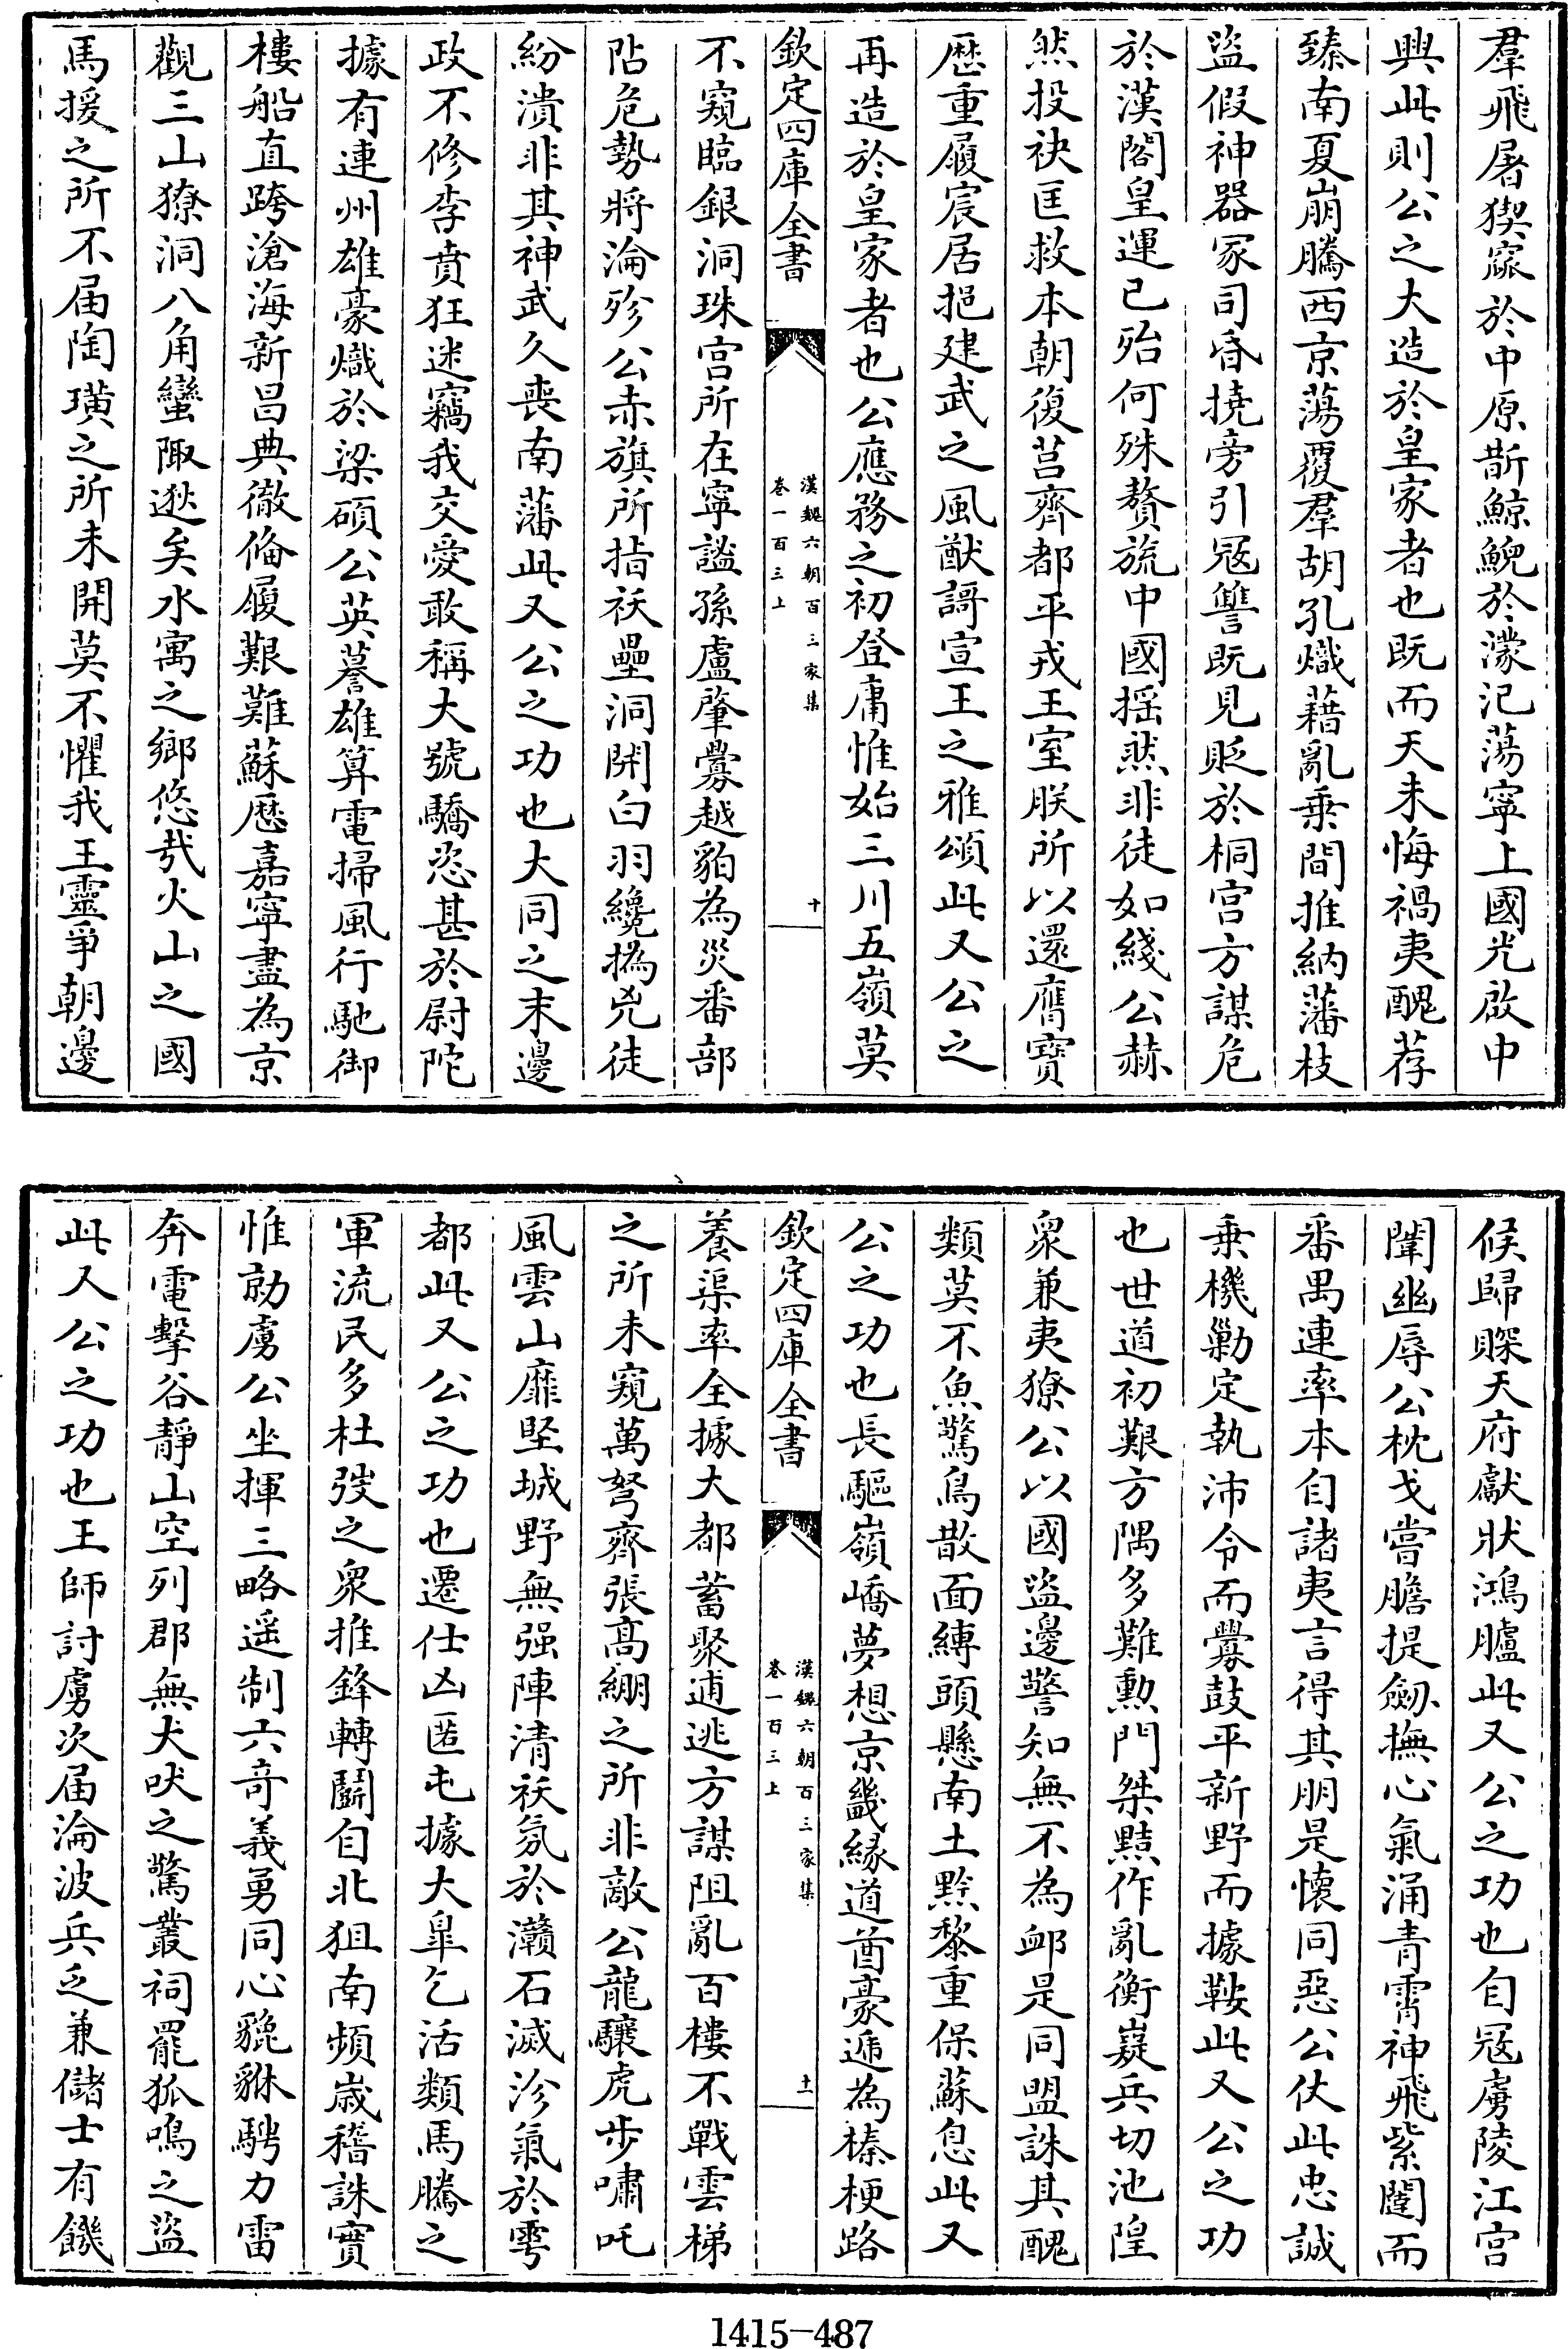 羣飛屠猰㺄於中原斮鯨鯢於濛汜蕩寧上國光啟中
興此則公之大造於皇家者也既而天未悔禍夷醜荐
臻南夏崩騰西京蕩覆羣胡孔熾藉亂乗間推納藩枝
盜假神器冢司昏撓旁引冦讐既見貶於桐宫方謀危
於漢閣皇運已殆何殊贅旒中國揺然非徒如綫公赫
然投袂匡救本朝復莒齊都平戎王室朕所以還膺寶
歴重履宸居挹建武之風猷謌宣王之雅頌此又公之
再造於皇家者也公應務之初登庸惟始三川五嶺莫
欽定四庫全書
漢魏六朝百三家集
卷一百三上
十
不窺臨銀洞珠宫所在寧謐孫盧肇釁越貊為災番部
阽危勢將淪殄公赤旗所指祅壘洞開白羽纔撝兇徒
紛潰非其神武久喪南藩此又公之功也大同之末邊
政不修李賁狂迷竊我交愛敢稱大號驕恣甚於尉陀
據有連州雄豪熾於梁碩公英謩雄算電掃風行馳御
樓船直跨滄海新昌典徹偹履艱難蘇歴嘉寧盡為京
觀三山獠洞八角蠻陬逖矣水寓之鄉悠哉火山之國
馬援之所不届陶璜之所未開莫不懼我王靈爭朝邊
候歸賝天府獻狀鴻臚此又公之功也自冦虜陵江宫
闈幽辱公枕戈嘗膽提劒撫心氣涌青霄神飛紫闥而
番禺連率本自諸夷言得其朋是懷同惡公仗此忠誠
乗機勦定執沛令而釁鼓平新野而據鞍此又公之功
也世道初艱方隅多難勲門桀黠作亂衡嶷兵切池隍
衆兼夷獠公以國盜邊警知無不為䘏是同盟誅其醜
類莫不魚驚鳥散面縛頭懸南土黔黎重保蘇息此又
公之功也長驅嶺嶠夢想京畿縁道酋豪遞為榛梗路
欽定四庫全書
漢魏六朝百三家集
卷一百三上
十一
養渠率全據大都蓄聚逋逃方謀阻亂百樓不戰雲梯
之所未窺萬弩齊張髙綳之所非敵公龍驤虎步嘯吒
風雲山靡堅城野無强陣清祅氛於灨石滅沴氣於雩
都此又公之功也遷仕凶匿屯據大臯乞活類馬騰之
軍流民多杜弢之衆推鋒轉鬭自北狙南頻歳稽誅實
惟勍虜公坐揮三略遥制六竒義勇同心貔貅騁力雷
奔電擊谷靜山空列郡無犬吠之驚叢祠罷狐鳴之盜
此又公之功也王師討虜次届淪波兵乏兼儲士有饑
1415-487